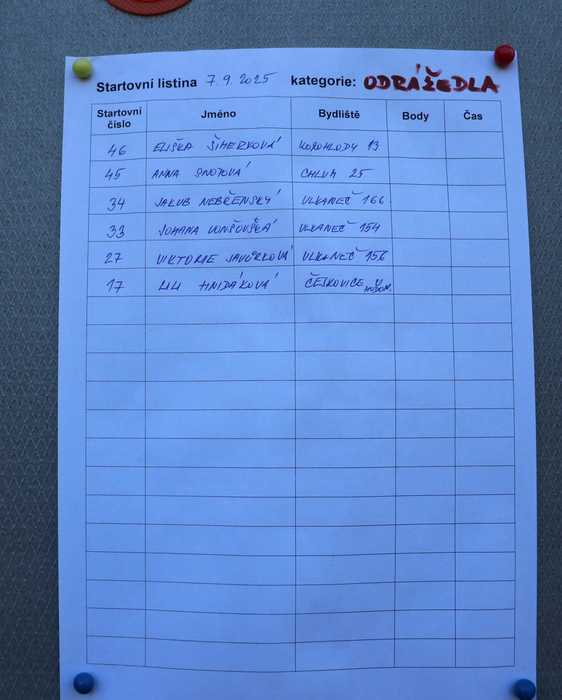 Startovní listina 7.9.2025 kategorie: ODRÁŽEDLA
Startovní číslo Jméno Bydliště Body Čas
46 ELIŠKA ŠIMERKOVÁ 13
45 ANNA CHLUM 25
34 JAKUB NEBŘENSKÝ VLKANEČ 166
33 JOHANA VLKANEČ 154
27 VIKTORIE JAVŮRKOVÁ VLKANEČ 156
17 LILI HNIDÁKOVÁ ČEJKOVICE